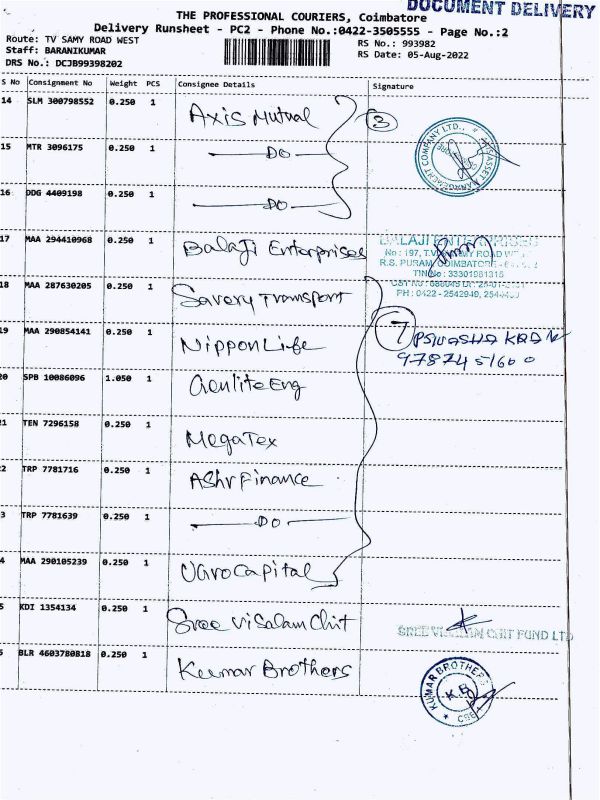 DOCUMENT DELIVERY
THE PROFESSIONAL COURIERS, Coimbatore
Delivery Runsheet - PC2 - Phone No.:0422-3505555 - Page No.:2
Route: TV SAMY ROAD WEST
RS No.: 993982
Staff: BARANIKUMAR
RS Date: 05-Aug-2022
DRS No.: DCJB99398202
S No Consignment No Weight PCS Consignee Details Signature
14 SLM 300798552 0.250 1 Axis Mutual 3
15 MTR 3096175 0.250 1 DO
16 DDG 4409198 0.250 1 DO
17 MAA 294410968 0.250 1 Balaji Enterprises
BALAJI ENTERPRISES
No : 197, T.V. SAMY ROAD WEST
R.S. PURAM, COIMBATORE
TIN No : 33301981315
PH : 0422 - 2542949,
18 MAA 287630205 0.250 1 Savery Transport
19 MAA 290854141 0.250 1 Nippon Life 7
97874 51600
20 SPB 10086096 1.050 1 Genlite Eng
21 TEN 7296158 0.250 1 MegaTex
2 TRP 7781716 0.250 1 Ashv Finance
3 TRP 7781639 0.250 1 DO
4 MAA 290105239 0.250 1 Ugro Capital
5 KDI 1354134 0.250 1 Sree Visalam Chit
SREE VISALAM CHIT FUND LTD
BLR 4603780818 0.250 1 Kumar Brothers
KUMAR BROTHERS
K B
CBE